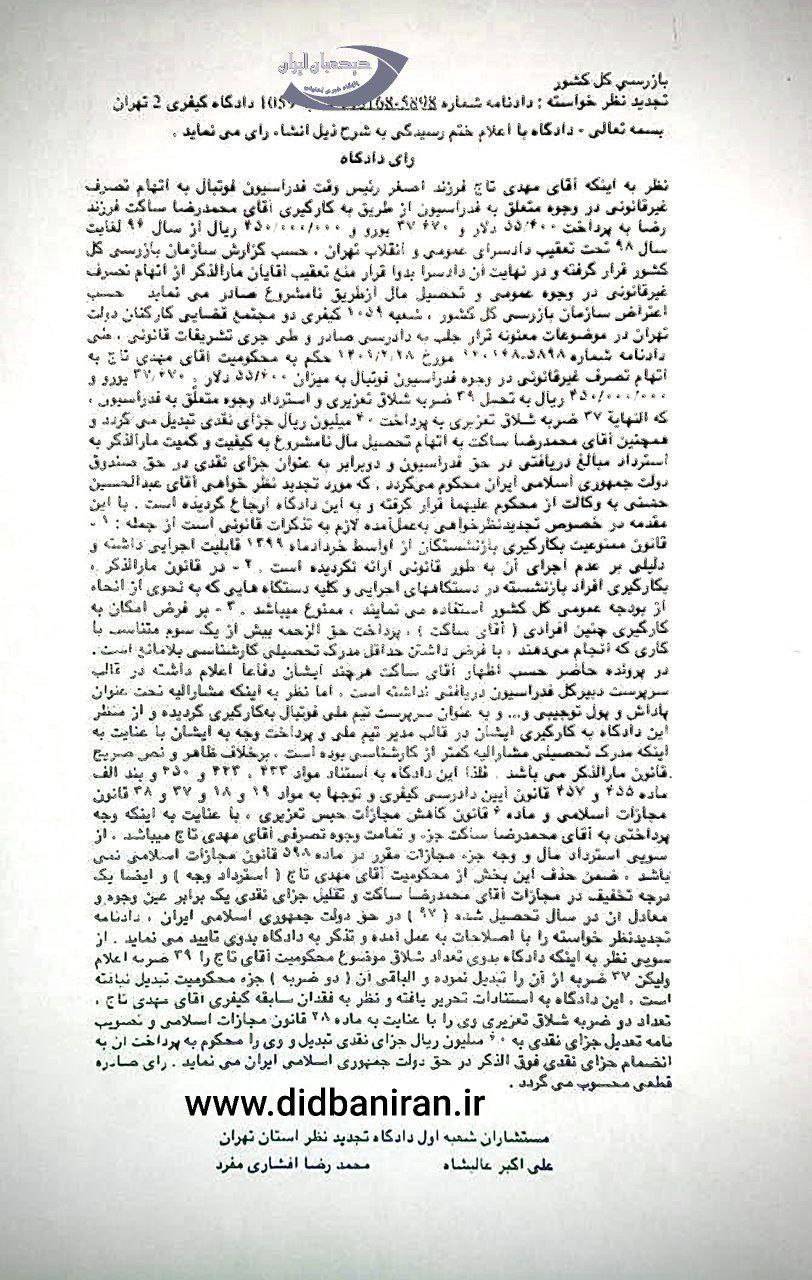 دیدبان ایران
بازرسی کل کشور
تجدید نظر خواسته : دادنامه شماره 168-5898 1059 دادگاه کیفری 2 تهران
بسمه تعالی - دادگاه با اعلام ختم رسیدگی به شرح ذیل انشاء رای می نماید .
رای دادگاه
نظر به اینکه آقای مهدی تاج فرزند اصغر رئیس وقت فدراسیون فوتبال به اتهام تصرف
غیرقانونی در وجوه متعلق به فدراسیون از طریق به کارگیری آقای محمدرضا ساکت فرزند
رضا به پرداخت ۵۵/۴۰۰ دلار و ۳۷٬۶۷۰ یورو و ۴۵۰/۰۰۰/۰۰۰ ریال از سال ۹۶ لغایت
سال ۹۸ تحت تعقیب دادسرای عمومی و انقلاب تهران ، حسب گزارش سازمان بازرسی کل
کشور قرار گرفته و در نهایت آن دادسرا بدوا قرار منع تعقیب آقایان مارالذکر از اتهام تصرف
غیرقانونی در وجوه عمومی و تحصیل مال ازطریق نامشروع صادر می نماید حسب
اعتراض سازمان بازرسی کل کشور ، شعبه ۱۰۵۹ کیفری دو مجتمع قضایی کارکنان دولت
تهران در موضوعات معنونه قرار جلب به دادرسی صادر و طی جری تشریفات قانونی ، طی
دادنامه شماره مورخ ۱۴۰۱/۲/۲۸ حکم به محکومیت آقای مهدی تاج به
اتهام تصرف غیرقانونی در وجوه فدراسیون فوتبال به میزان ۵۵/۴۰۰ دلار و ۳۷٬۶۷۰ یورو و
۴۵۰/۰۰۰/۰۰۰ ریال به تحمل ۳۹ ضربه شلاق تعزیری و استرداد وجوه متعلق به فدراسیون ،
که النهایة ۳۷ ضربه شلاق تعزیری به پرداخت ۴۰ میلیون ریال جزای نقدی تبدیل می گردد و
همچنین آقای محمدرضا ساکت به اتهام تحصیل مال نامشروع به کیفیت و کمیت مارالذکر به
استرداد مبالغ دریافتی در حق فدراسیون و دوبرابر به عنوان جزای نقدی در حق صندوق
دولت جمهوری اسلامی ایران محکوم میگردد ، که مورد تجدید نظر خواهی آقای عبدالحسین
به وکالت از محکوم علیهما قرار گرفته و به این دادگاه ارجاع گردیده است . با این
مقدمه در خصوص تجدیدنظرخواهی به‌عمل‌آمده لازم به تذکرات قانونی است از جمله : ۱ -
قانون ممنوعیت بکارگیری بازنشستگان از اواسط خردادماه ۱۳۹۹ قابلیت اجرایی داشته و
دلیلی بر عدم اجرای آن به طور قانونی ارائه نگردیده است . ۲ - در قانون مارالذکر ،
بکارگیری افراد بازنشسته در دستگاههای اجرایی و کلیه دستگاه هایی که به نحوی از انحاء
از بودجه عمومی کل کشور استفاده می نمایند ، ممنوع میباشد . ۳ - بر فرض امکان به
کارگیری چنین افرادی ( آقای ساکت ) ، پرداخت حق الزحمه بیش از یک سوم متناسب با
کاری که انجام می‌دهند ، با فرض داشتن حداقل مدرک تحصیلی کارشناسی بلامانع است .
در پرونده حاضر حسب اظهار آقای ساکت هرچند ایشان دفاعا اعلام داشته در قالب
سرپرست دبیرکل فدراسیون دریافتی نداشته است ، اما نظر به اینکه مشارالیه تحت عنوان
پاداش و پول توجیبی و... و به عنوان سرپرست تیم ملی فوتبال به‌کارگیری گردیده و از منظر
این دادگاه به کارگیری ایشان در قالب مدیر تیم ملی و پرداخت وجه به ایشان با عنایت به
اینکه مدرک تحصیلی مشارالیه کمتر از کارشناسی بوده است ، برخلاف ظاهر و نص صریح
قانون مارالذکر می باشد . فلذا این دادگاه به استناد مواد ۴۳۳ ، ۴۴۳ و ۴۵۰ و بند الف
ماده ۴۵۵ و ۴۵۷ قانون آیین دادرسی کیفری و توجها به مواد ۱۹ و ۱۸ و ۳۷ و ۳۸ قانون
مجازات اسلامی و ماده ۶ قانون کاهش مجازات حبس تعزیری ، با عنایت به اینکه وجه
پرداختی به آقای محمدرضا ساکت جزء و تمامت وجوه تصرفی آقای مهدی تاج میباشد . از
سویی استرداد مال و وجه جزء مجازات مقرر در ماده ۵۹۸ قانون مجازات اسلامی نمی
باشد ، ضمن حذف این بخش از محکومیت آقای مهدی تاج ( استرداد وجه ) و ایضا یک
درجه تخفیف در مجازات آقای محمدرضا ساکت و تقلیل جزای نقدی یک برابر عین وجوه و
معادل آن در سال تحصیل شده ( ۹۷ ) در حق دولت جمهوری اسلامی ایران ، دادنامه
تجدیدنظر خواسته را با اصلاحات به عمل آمده و تذکر به دادگاه بدوی تایید می نماید . از
سویی نظر به اینکه دادگاه بدوی تعداد شلاق موضوع محکومیت آقای تاج را ۳۹ ضربه اعلام
ولیکن ۳۷ ضربه از آن را تبدیل نموده و الباقی آن ( دو ضربه ) جزء محکومیت تبدیل نیافته
است ، این دادگاه به استنادات تحریر یافته و نظر به فقدان سابقه کیفری آقای مهدی تاج ،
تعداد دو ضربه شلاق تعزیری وی را با عنایت به ماده ۲۸ قانون مجازات اسلامی و تصویب
نامه تعدیل جزای نقدی به ۶۰ میلیون ریال جزای نقدی تبدیل و وی را محکوم به پرداخت آن به
انضمام جزای نقدی فوق الذکر در حق دولت جمهوری اسلامی ایران می نماید . رای صادره
قطعی محسوب می گردد .
www.didbaniran.ir
مستشاران شعبه اول دادگاه تجدید نظر استان تهران
علی اکبر عالیشاه محمد رضا افشاری مفرد